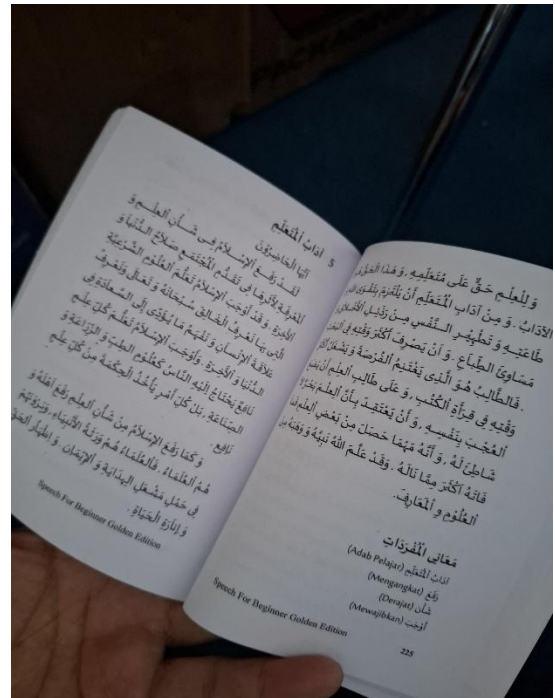 5 آدَابُ الْمُتَعَلِّمِ
أَيُّهَا الْحَاضِرُوْنَ
لَقَدْ رَفَعَ الْإِسْلَامُ فِى شَأْنِ الْعِلْمِ وَ
الْمَعْرِفَةِ لِأَثَرِهَا فِى تَقَدُّمِ الْمُجْتَمَعِ صَلَاحُ الدُّنْيَا وَ
الْآخِرَةِ. وَ قَدْ أَوْجَبَ الْإِسْلَامُ تَعَلُّمَ الْعُلُوْمِ الشَّرْعِيَّةِ
الَّتِى بِهَا نَعْرِفُ الْخَالِقَ سُبْحَانَهُ وَ تَعَالَى وَنَعْرِفُ
عَلَاقَةَ الْإِنْسَانِ وَ نَفْهَمُ مَا يُؤَدِّى إِلَى السَّعَادَةِ فِى
الدُّنْيَا وَ الْآخِرَةِ. وَأَوْجَبَ الْإِسْلَامُ تَعَلُّمَ كُلِّ عِلْمٍ
نَافِعٍ يَحْتَاجُ إِلَيْهِ النَّاسُ كَعُلُوْمِ الطِّبِّ وَ الزِّرَاعَةِ وَ
الصِّنَاعَةِ, بَلْ كُلُّ أَمْرٍ يَأْخُذُ الْحِكْمَةَ مِنْ كُلِّ عِلْمٍ
نَافِعٍ.
وَ كَمَا رَفَعَ الْإِسْلَامُ مِنْ شَأْنِ الْعِلْمِ رَفَعَ أَهْلَهُ وَ
هُمُ الْعُلَمَاءُ, فَالْعُلَمَاءُ هُمْ وَرَثَةُ الْأَنْبِيَاءِ,
فِى حَمْلِ مَشْعَلِ الْهِدَايَةِ وَ الْإِيْمَانِ, وَ إِظْهَارِ الْحَقِّ
وَ إِنَارَةِ الْحَيَاةِ.
Speech For Beginner Golden Edition
وَ لِلْعِلْمِ حَقٌّ عَلَى مُتَعَلِّمِهِ, وَ هٰذَا الْحَقُّ
الْآدَابُ. وَ مِنْ آدَابِ الْمُتَعَلِّمِ أَنْ يَلْتَزِمَ بِتَقْوَى
طَاعَتِهِ وَ تَطْهِيْرِ النَّفْسِ مِنْ رَذِيْلِ الْأَخْلَاقِ
مَسَاوِئِ الطِّبَاعِ. وَ أَنْ يَصْرِفَ أَكْثَرَ وَقْتِهِ فِى
وَقْتِهِ فِى قِرَأَةِ الْكُتُبِ, وَ عَلَى طَالِبِ الْعِلْمِ أَنْ
. فَالطَّالِبُ هُوَ الَّذِى يَغْتَنِمُ الْفُرْصَةَ وَ
الْعُجْبَ بِنَفْسِهِ, وَ أَنْ يَعْتَقِدَ بِأَنَّ الْعِلْمَ بَحْرٌ
شَاطِئَ لَهُ, وَ أَنَّهُ مَهْمَا حَصَلَ مِنْ بَعْضِ الْعِلْمِ
فَاتَهُ أَكْثَرُ مِمَّا نَالَهُ. وَقَدْ عَلَّمَ اللهُ نَبِيَّهُ وَ
الْعُلُوْمِ وَ الْمَعَارِفِ.
مَعَانِى الْمُفْرَدَاتِ
آدَابُ الْمُتَعَلِّمِ (Adab Pelajar)
رَفَعَ (Mengangkat)
شَأْن (Derajat)
أَوْجَبَ (Mewajibkan)
Speech For Beginner Golden Edition
225